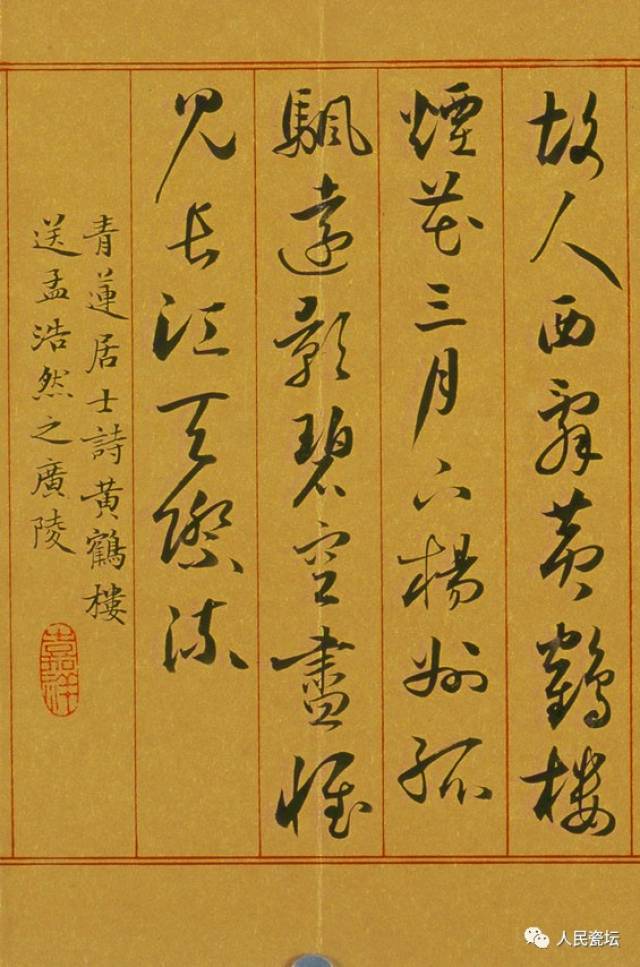 故人西辭黃鶴樓
煙花三月下楊州孤
颿遠影碧空盡惟
見長江天際流
青蓮居士詩黃鶴樓
送孟浩然之廣陵
嘉洋
人民瓷坛